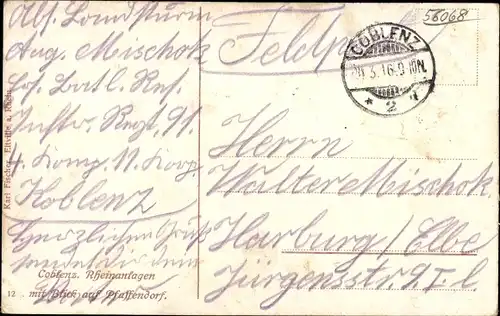 Abs. Landsturm
Aug. Mischok
Ers. Batl. Res.
Inftr. Regt. 91.
4. Komp. 11. Korp.
Koblenz
Herzlichen Gruß
sendet dir
Feldp
56068
COBLENZ
3.16.9-10N.
* 2 *
Herrn
Walter Mischok
Harburg/Elbe
Jürgensstr. 9 I l
Karl Fischer, Eltville a. Rhein.
Coblenz. Rheinanlagen
12 mit Blick auf Pfaffendorf.